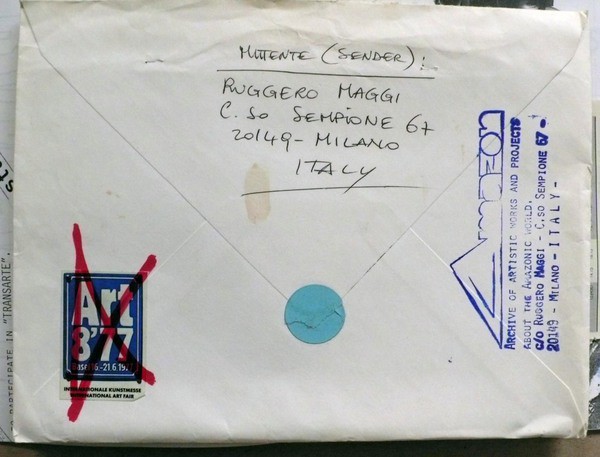 MITTENTE (SENDER):
RUGGERO MAGGI
C.SO SEMPIONE 67
20149 - MILANO
ITALY
AMAZON
ARCHIVE OF ARTISTIC WORKS AND PROJECTS
ABOUT THE AMAZONIC WORLD.
c/o RUGGERO MAGGI - C.SO SEMPIONE 67 -
20149 - MILANO - ITALY -
Art
8'77
-21.6.19
INTERNATIONALE KUNSTMESSE
INTERNATIONAL ART FAIR
PARTECIPATE IN "TRANSARTE"